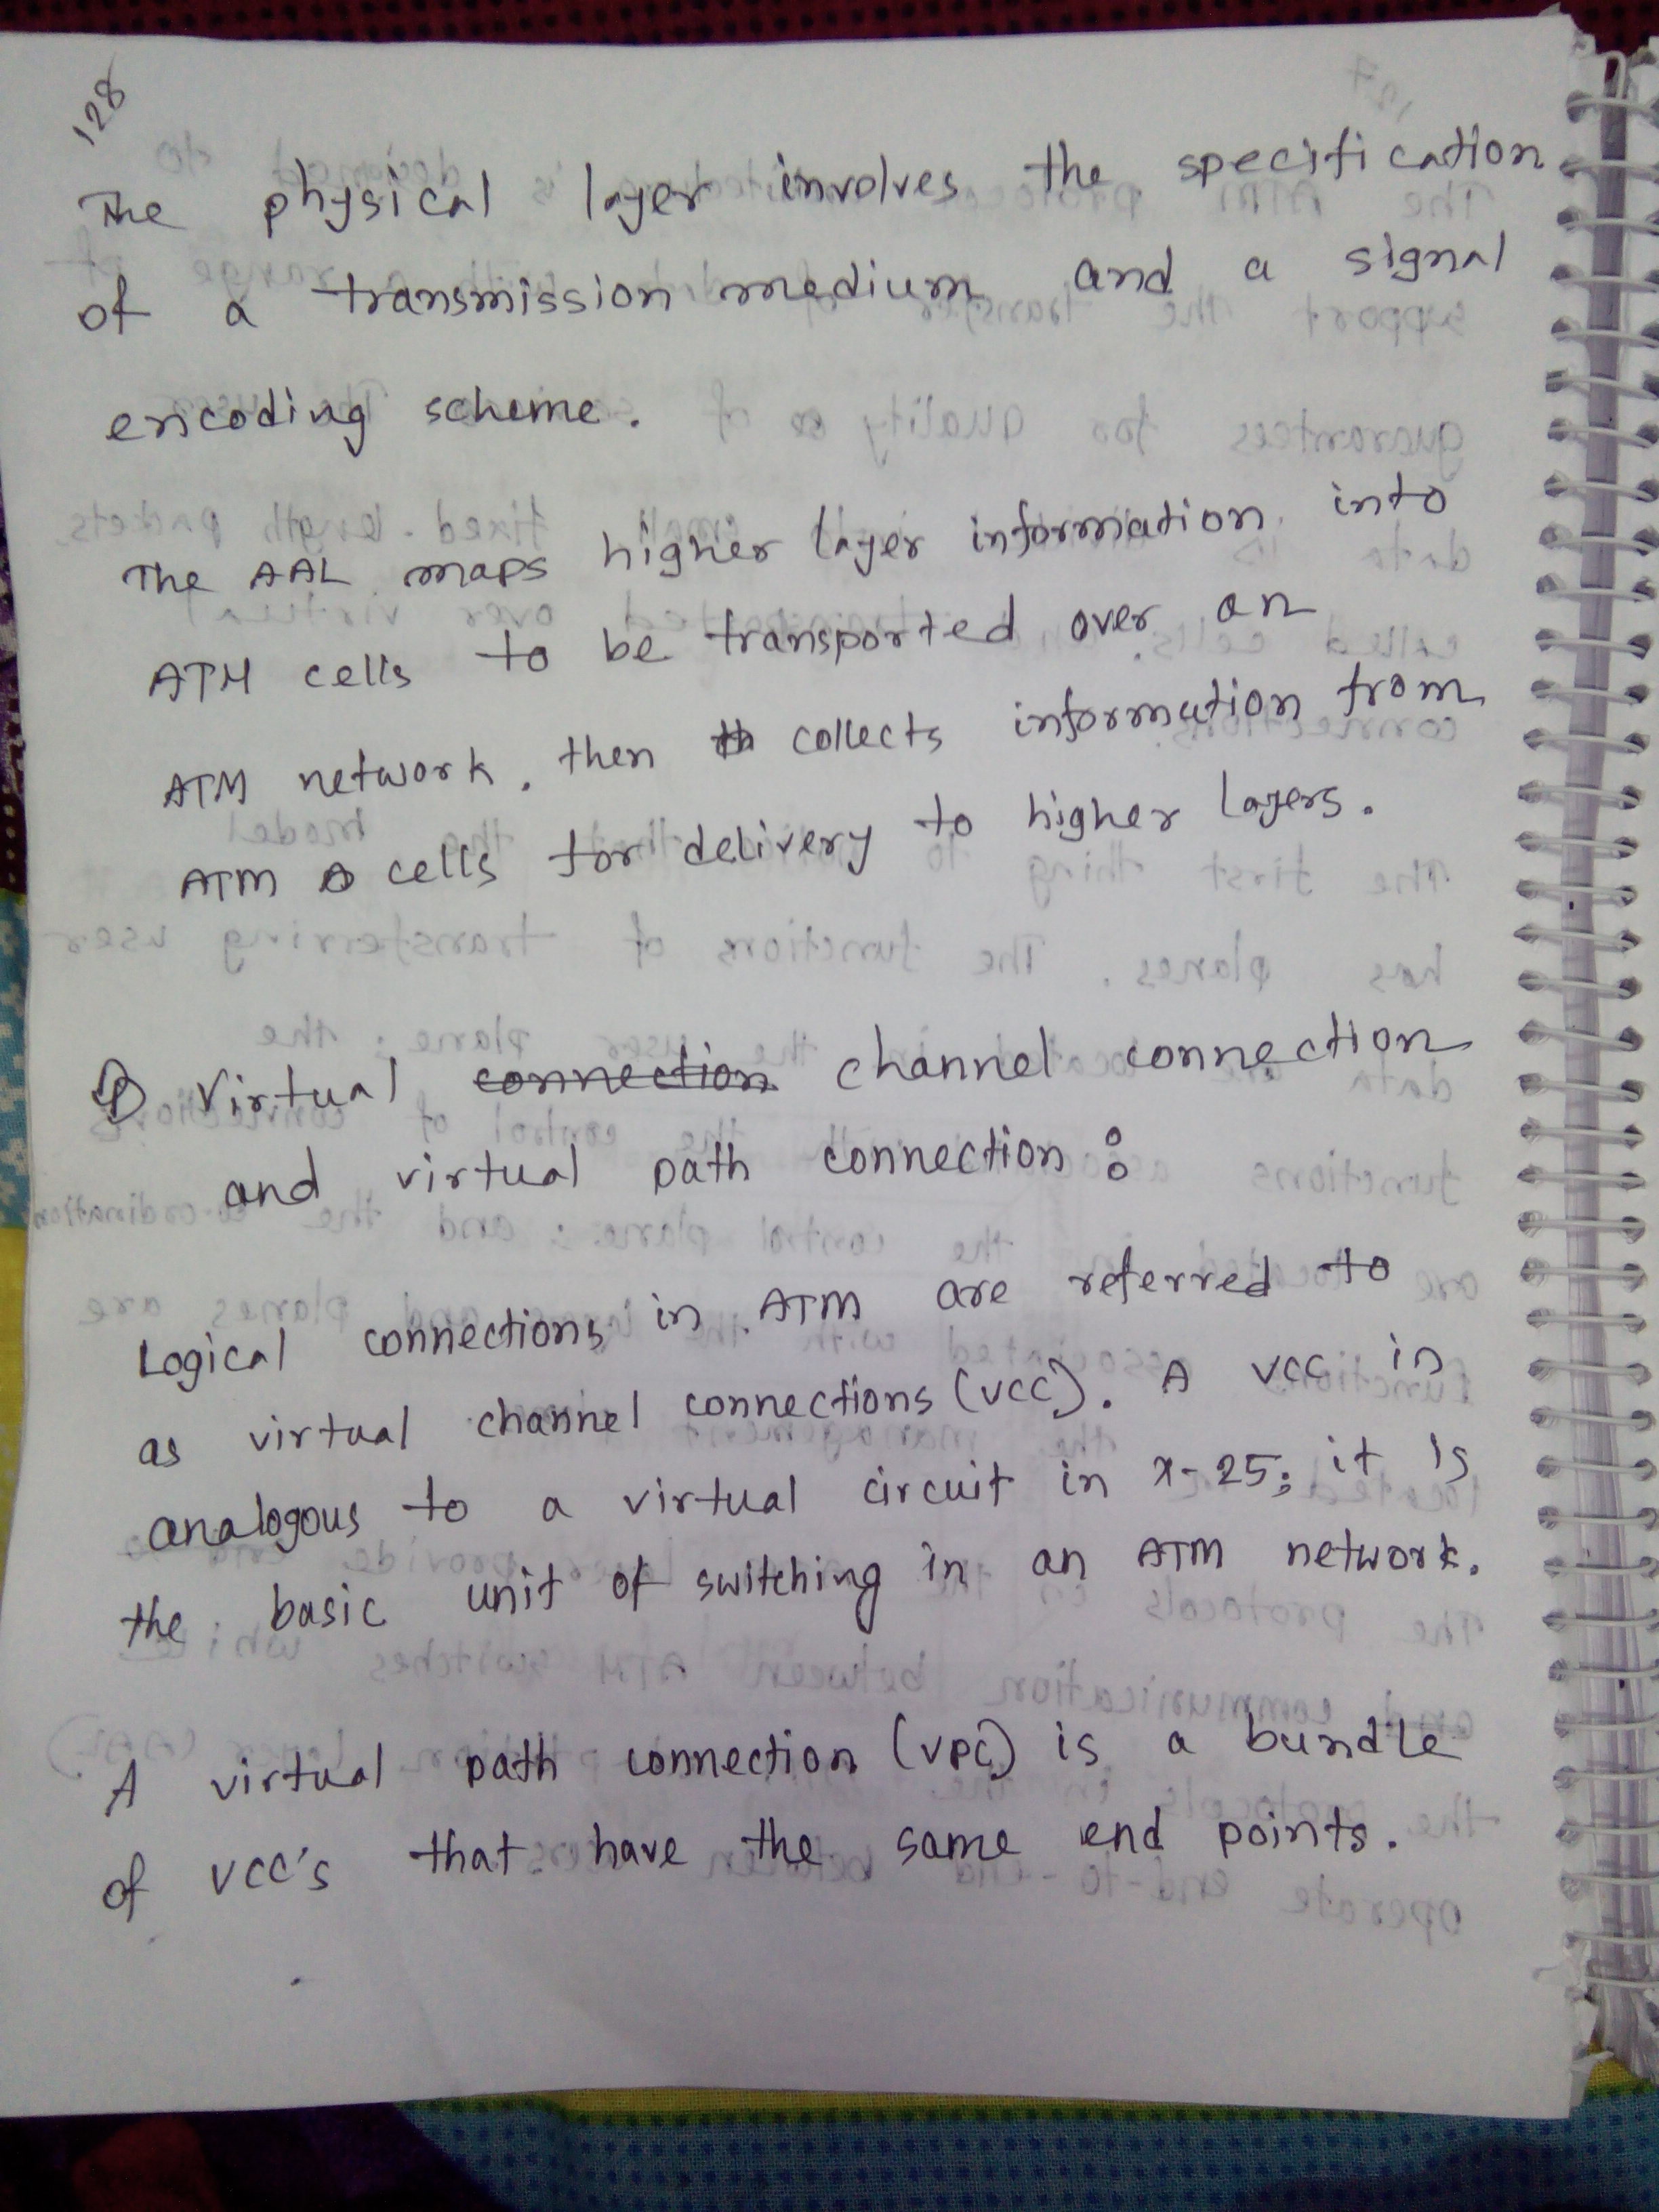 128
The physical layer involves the specification
of a transmission medium and a signal
encoding scheme.
The AAL maps higher layer information into
ATM cells to be transported over an
ATM network, then collects information from
ATM cells for delivery to higher layers.
Virtual connection channel connection
and virtual path connection :
Logical connections in ATM are referred to
as virtual channel connections (VCC). A VCC is
analogous to a virtual circuit in x-25; it is
the basic unit of switching in an ATM network.
A virtual path connection (VPC) is a bundle
of VCC's that have the same end points.